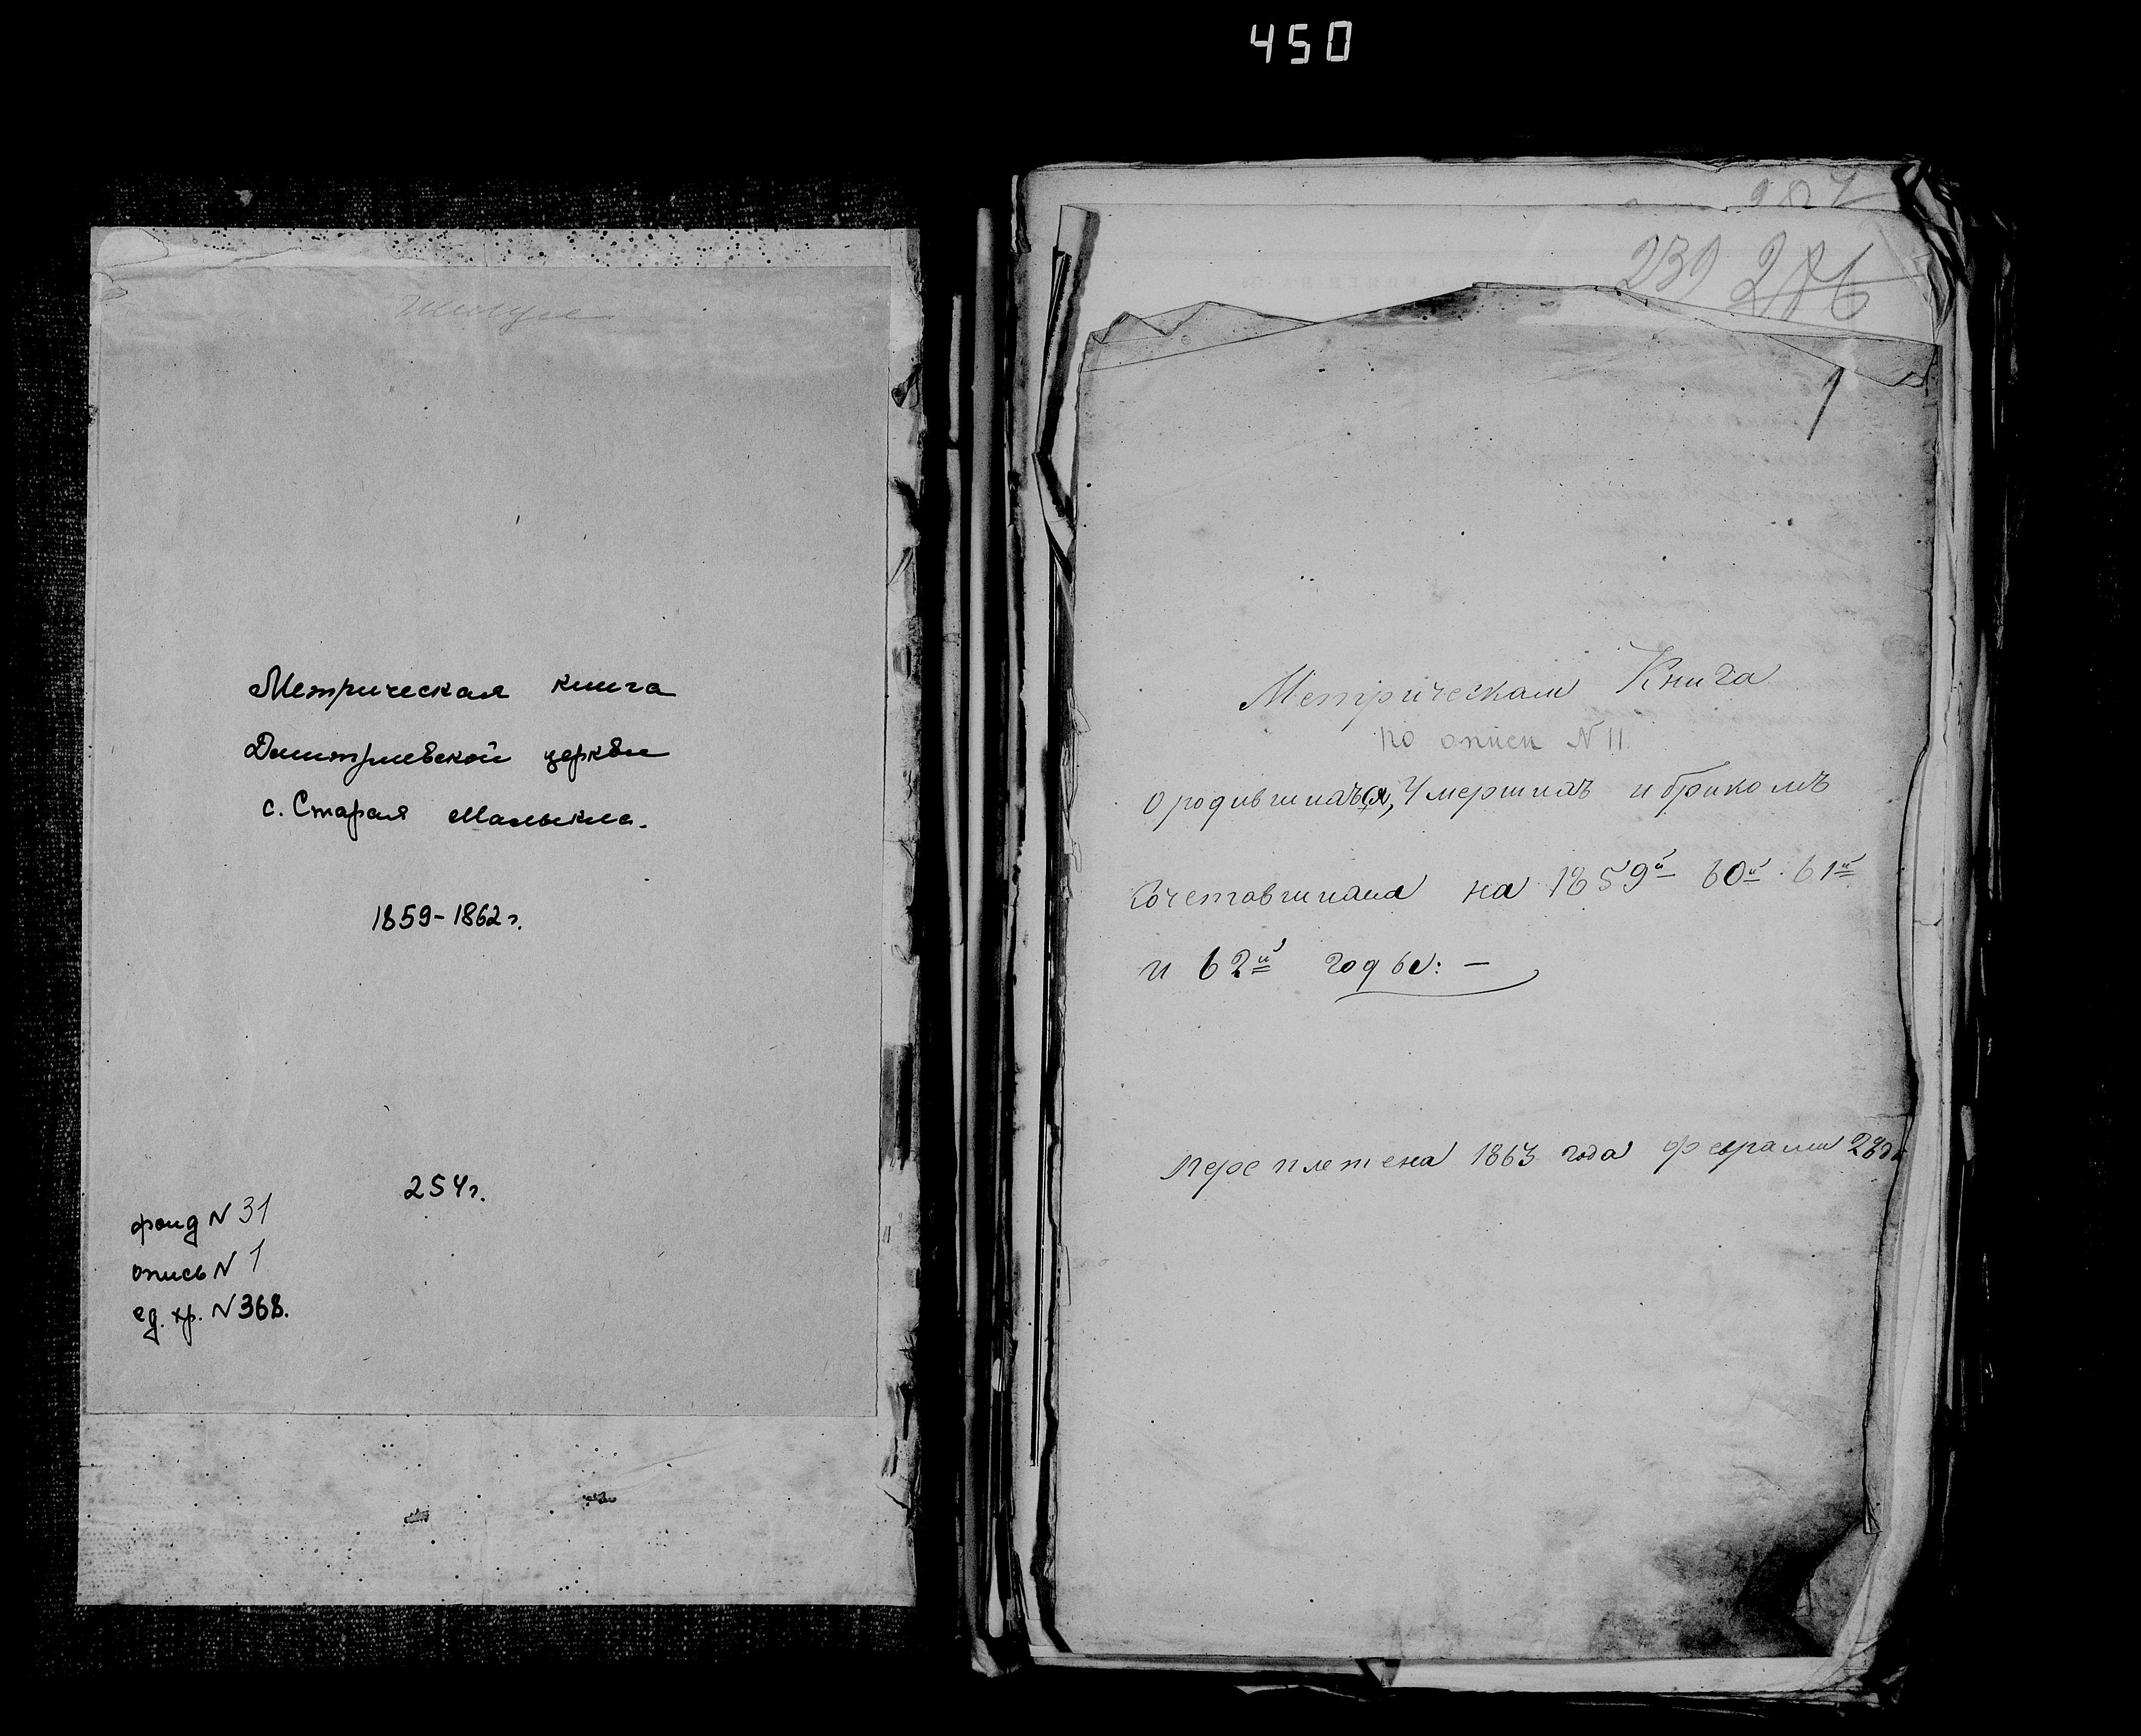 450
Метрическая книга
Дмитриевской церкви
с. Старая Малыкла.
1859-1862г.
254г.
фонд N 31
опись N 1
ед. хр. N 368.
239 286
1
Метрическая Книга
по описи N 11.
о родившихъся, Умершихъ и бракомъ
Сочетавшихся на 1859й 60й 61й
и 62й годы: —
переплетена 1863 года февраля 28